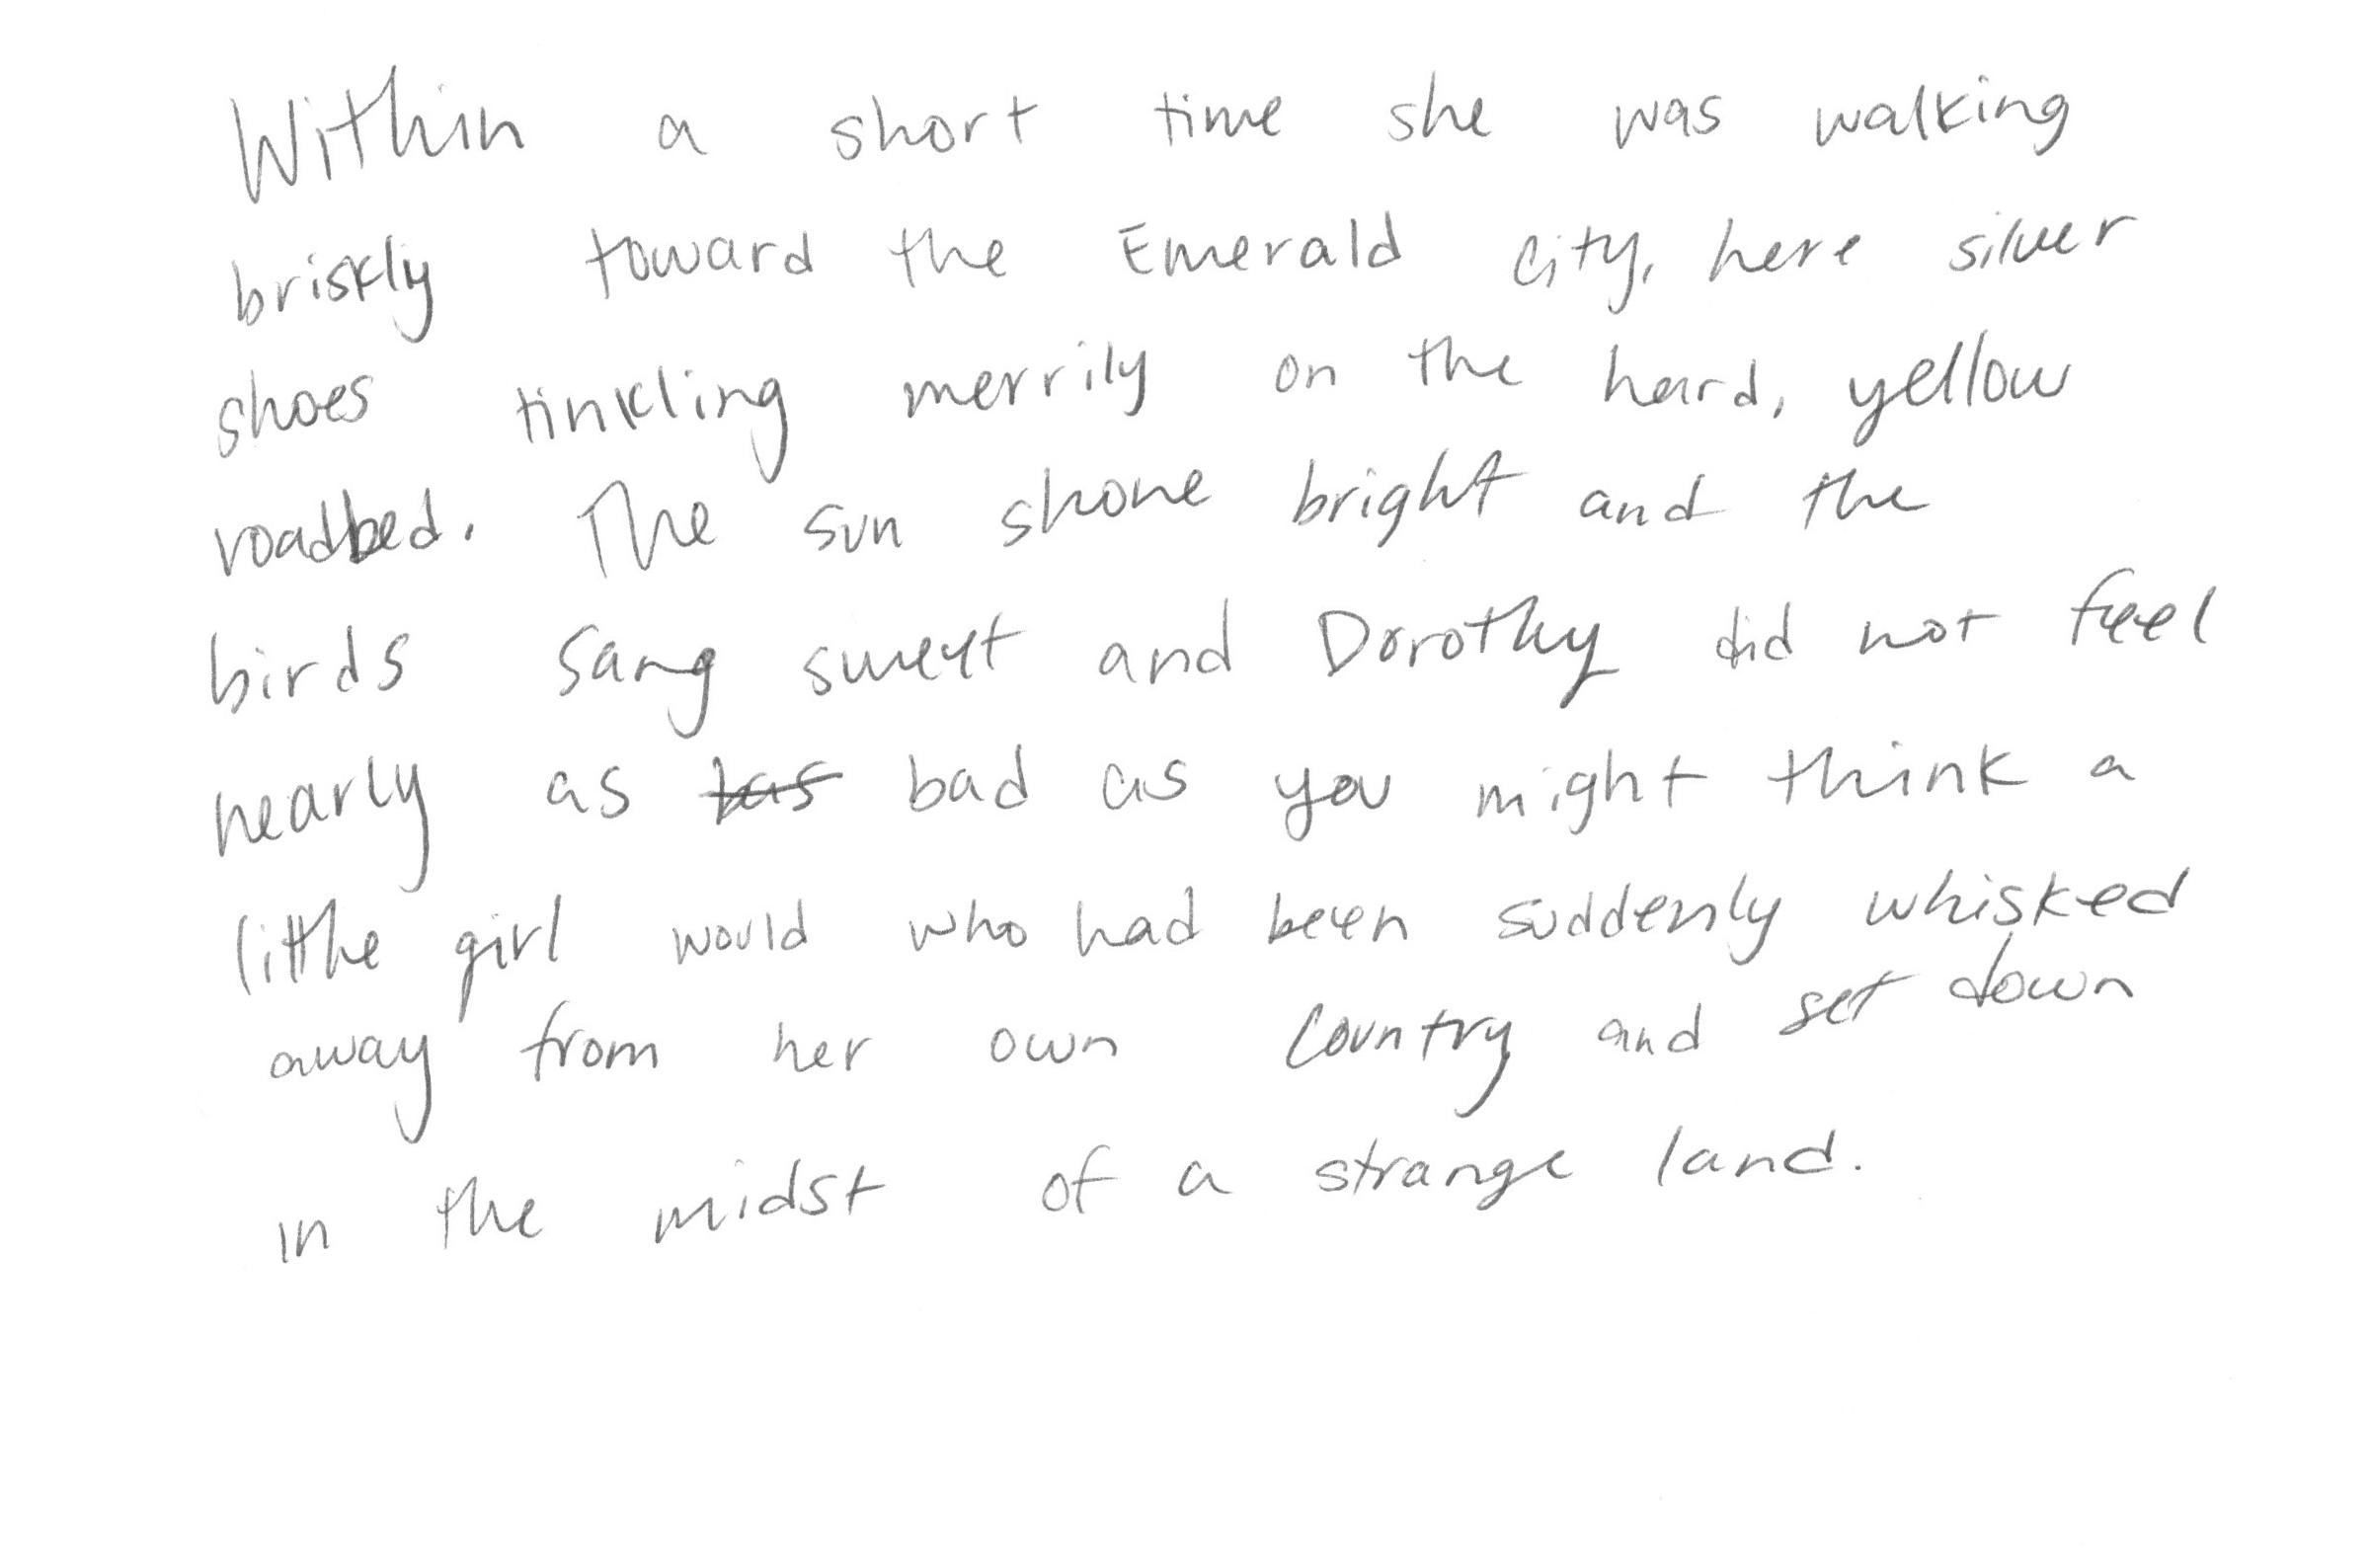 Within a short time she was walking
briskly toward the Emerald City, here silver
shoes tinkling merrily on the hard, yellow
roadbed. The sun shone bright and the
birds sang sweet and Dorothy did not feel
nearly as bad as you might think a
little girl would who had been suddenly whisked
away from her own country and set down
in the midst of a strange land.